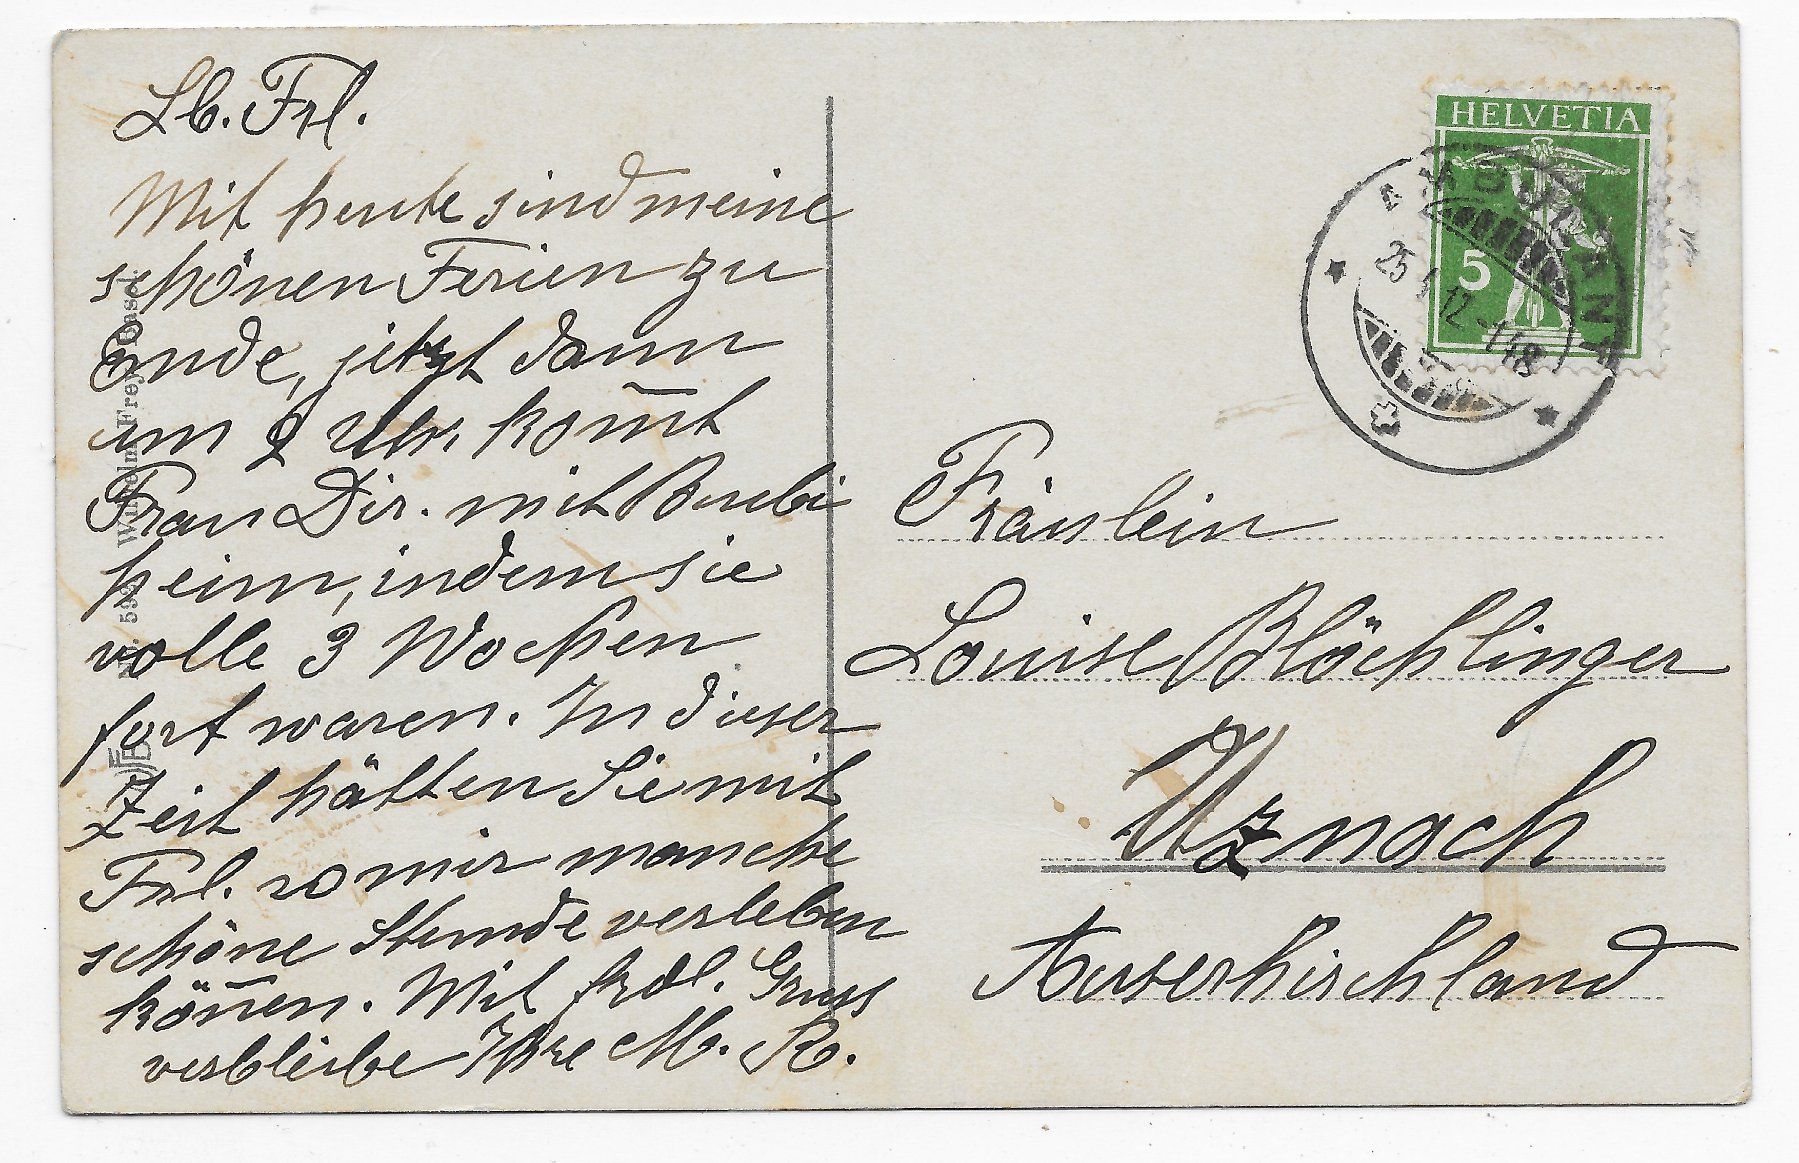 Lb. Frl.
Mit heute sind meine
schönen Ferien zu
Ende, jetzt dann
um 2 Uhr kom̅t
Frau Dir. mit Buebi
heim, indem sie
volle 3 Wochen
fort waren. In dieser
Zeit hätten Sie mit
Frl. so mir manche
schöne Stunde verleben
kön̅en. Mit frdl. Gruss
verbleibe Ihre M. R.
Wilhelm Frey, Basel.
HELVETIA
5
25
12
Fräulein
Louise Blöchlinger
Uznach